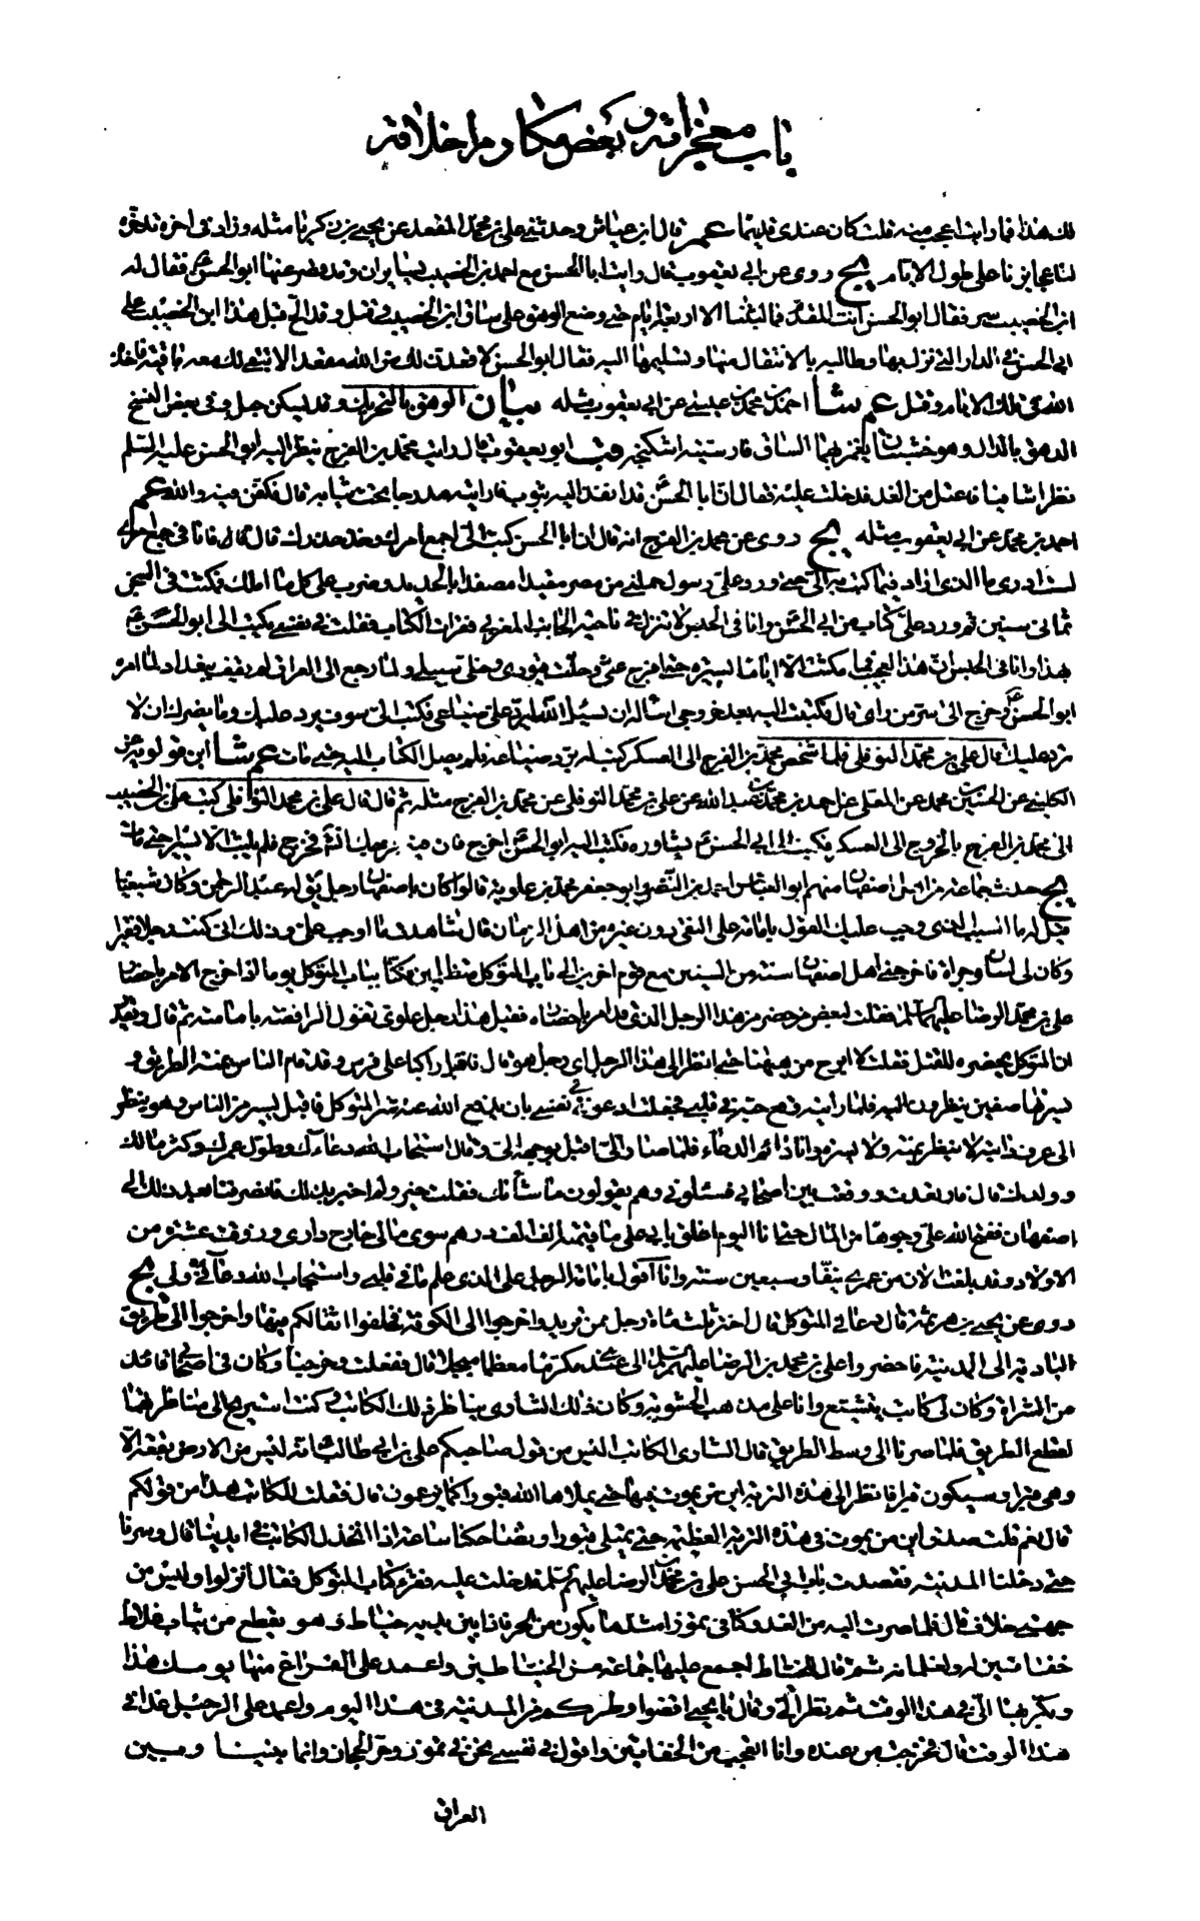 باب معجزاته و بعض مكارم اخلاقه
لك هذا فما رايت اعجب منه قلت كان عندى قديما عم قال ابن عياش وحدثنى على بن محمد المقعد عن يحيى بن زكريا مثله وزاد فى اخره
لنا على طول الايام يج روى عن ابى يعقوب قال رايت ابا الحسن مع احمد بن الخصيب يتسايران وقد قصر عنه ابو الحسن ع فقال له
ابن الخصيب سر فقال ابو الحسن انت المقدم فما لبثنا الا اربعة ايام حتى وضع الوهق على ساق ابن الخصيب وقتل وقد الح قبل هذا ابن الخصيب على
ابى الحسن فى الدار التى نزلها وطالبه بالانتقال منها وتسليمها اليه فقال ابو الحسن لاقعدن لك من الله مقعدا لا تبقى لك معه باقية فاخذه
الله فى تلك الايام وقتل عم شا احمد بن محمد بن عيسى عن ابى يعقوب مثله بيان الوهق بالتحريك وقد يسكن حبل وفى بعض النسخ
الدهق بالدال وهو خشبتان يغمز بهما الساق فارسيته اشكنجه قب ابو يعقوب قال رايت محمد بن الفرج ينظر اليه ابو الحسن عليه السلم
نظرا شافيا فاعتل من الغد فدخلت عليه فقال ان ابا الحسن قد انفذ اليه بثوب فارانيه مدرجا تحت ثيابه قال فكفن فيه والله عم
احمد بن محمد عن ابى يعقوب مثله يج روى عن محمد بن الفرج انه قال ان ابا الحسن كتب الى اجمع امرك وخذ حذرك قال فانا فى جمع امرى
لست ادرى ما الذى اراد فيما كتب به الى حتى ورد على رسول حملنى من مصر مقيدا مصفدا بالحديد وضرب على كل ما املك فمكثت فى السجن
ثمانى سنين ثم ورد على كتاب من ابى الحسن وانا فى الحبس لا تنزل فى ناحية الجانب الغربى فقرات الكتاب فقلت فى نفسى يكتب الى ابو الحسن ع
بهذا وانا فى الحبس ان هذا لعجيب فما مكثت الا اياما يسيرة حتى افرج عنى وحلت قيودى وخلى سبيلى ولما رجع الى العراق لم يقف ببغداد لما امره
ابو الحسن ع وخرج الى سر من راى قال فكتبت اليه بعد خروجى اساله ان يسئل الله ليرد على ضياعى فكتب الى سوف يرد عليك وما يضرك ان لا
ترد عليك قال على بن محمد النوفلى فلما شخص محمد بن الفرج الى العسكر كتب له برد ضياعه فلم يصل الكتاب اليه حتى مات عم شا ابن قولويه عن
الكلينى عن الحسين بن محمد عن المعلى عن احمد بن محمد بن عبد الله عن على بن محمد النوفلى عن محمد بن الفرج مثله ثم قال قال على بن محمد النوفلى كتب على بن الخصيب
الى محمد بن الفرج بالخروج الى العسكر فكتب الى ابى الحسن ع يشاوره فكتب اليه ابو الحسن اخرج فان فيه فرجك انش فخرج فلم يلبث الا يسيرا حتى مات
يج حدث جماعة من اهل اصفهان منهم ابو العباس احمد بن النضر وابو جعفر محمد بن علوية قالوا كان باصفهان رجل يقال له عبد الرحمن وكان شيعيا
قيل له ما السبب الذى وجب عليك القول بامامة على النقى دون غيره من اهل الزمان قال شاهدت ما اوجب على وذلك انى كنت رجلا فقيرا
وكان لى لسان وجراة فاخرجنى اهل اصفهان سنة من السنين مع قوم اخرين الى باب المتوكل متظلمين فكنا بباب المتوكل يوما اذا خرج الامر باحضار
على بن محمد الرضا عليهما السلم فقلت لبعض من حضر من هذا الرجل الذى قد امر باحضاره فقيل هذا رجل علوى تقول الرافضة بامامته ثم قال ويقدر
ان المتوكل يحضره للقتل فقلت لا ابرح من ههنا حتى انظر الى هذا الرجل اى رجل هو قال فاقبل راكبا على فرس وقد قام الناس يمنة الطريق و
يسرتها صفين ينظرون اليه فلما رايته وقع حبه فى قلبى فجعلت ادعو فى نفسى بان يدفع الله عنه شر المتوكل فاقبل يسير بين الناس وهو ينظر
الى عرف دابته لا ينظر يمنة ولا يسرة وانا دائم الدعاء فلما صار الى اقبل بوجهه الى وقال استجاب الله دعاءك وطول عمرك وكثر مالك
وولدك قال فارتعدت ووقعت بين اصحابى فسئلونى وهم يقولون ما شانك فقلت خير ولم اخبر بذلك فانصرفنا بعد ذلك الى
اصفهان ففتح الله على وجوها من المال حتى انا اليوم اغلق بابى على ما قيمته الف الف درهم سوى مالى خارج دارى ورزقت عشرة من
الاولاد وقد بلغت الان من عمرى نيفا وسبعين سنة وانا اقول بامامة الرجل على الذى علم ما فى قلبى واستجاب الله دعاءه فى ولى يج
روى عن يحيى بن هرثمة قال دعانى المتوكل قال اختر ثلثمائة رجل ممن تريد واخرجوا الى الكوفة فخلفوا اثقالكم فيها واخرجوا الى طريق
البادية الى المدينة فاحضروا على بن محمد بن الرضا عليهم السلم الى عندى مكرما معظما مبجلا قال ففعلت وخرجنا وكان فى اصحابى قائد
من الشراة وكان لى كاتب يتشيع وانا على مذهب الحشوية وكان ذلك الشارى يناظر ذلك الكاتب وكنت استريح الى مناظرتهما
لقطع الطريق فلما صرنا الى وسط الطريق قال الشارى للكاتب اليس من قول صاحبكم على بن ابى طالب انه ليس من الارض بقعة الا
وهى قبر او سيكون قبرا فانظر الى هذه التربة اين من يموت فيها حتى يملاها الله قبورا كما يزعمون قال فقلت للكاتب هذا من قولكم
قال نعم قلت صدق اين من يموت فى هذه التربة العظيمة حتى يمتلى قبورا وتضاحكنا ساعة اذا انخذل الكاتب فى ايدينا قال وسرنا
حتى دخلنا المدينة فقصدت باب ابى الحسن على بن محمد بن الرضا عليهم السلم فدخلت عليه فقرء كتاب المتوكل فقال انزلوا وليس من
جهتى خلاف قال فلما صرت اليه من الغد وكنا فى تموز اشد ما يكون من الحر فاذا بين يديه خياط وهو يقطع من ثياب غلاظ
خفاتين له ولغلمانه ثم قال للخياط اجمع عليها جماعة من الخياطين واعمد على الفراغ منها يومك هذا
وبكر بها الى فى هذا الوقت ثم نظر الى وقال يا يحيى اقضوا وطركم من المدينة فى هذا اليوم واعمد على الرحيل غدا فى
هذا الوقت قال فخرجت من عنده وانا اتعجب من الخفاتين واقول فى نفسى نحن فى تموز وحر الحجاز وانما بيننا وبين
العراق